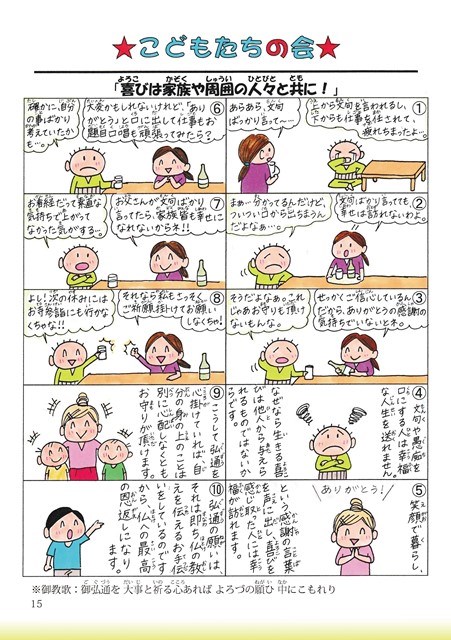 ★こどもたちの会★
「喜びは家族や周囲の人々と共に！」
よろこ かぞく しゅうい ひとびと とも
①
上から文句を言われるし、
下からも仕事を任されて、
疲れちまったよ…。
あらあら、文句
ばっかり言って〜…
②
文句ばかり言っても
幸せは訪れないわよ。
まぁ…分かってるんだけど、
ついつい口から出ちまうん
だよなぁ…。
③
せっかくご信心しているん
だから、ありがとうの感謝の
気持ちでいないとネ。
そうだよなぁ。これ
じゃあお守りも頂け
ないもんな。
④
文句や愚痴を
口にする人は幸福
な人生を送れません。
なぜなら生きる喜
びは他から与えら
れるものではないか
らです。
⑤
ありがとう！
笑顔で暮らし、
という感謝の言葉
を声に出し、喜びを
感じ取れた人には幸
福が訪れます。
⑥
大変かもしれないけれど、「あり
がとう」と口に出して仕事もお
題目口唱も頑張ってみたら？
確かに、自分
の事ばかり
考えていたか
も…。
⑦
お父さんが文句ばかり
言ってたら、家族皆も幸せに
なれないからネ!!
お看経だって素直な
気持ちで上がって
なかった気がする…。
⑧
それなら私もさっそく
ご祈願掛けてお願い
しなくちゃ！
よし！次の休みには
お寺参詣にも行かな
くちゃな!!
⑨
こうして弘通を
心掛けていれば、自
分の身の上のことは
別に心配しなくとも
お守りが頂けます。
⑩
弘通の願いは、
それは即ち仏の教
えを伝えるお手伝
いをしているのです
から、み仏への最高
の恩返しになり
ます。
※御教歌：御弘通を 大事と祈る心あれば よろづの願ひ 中にこもれり
ごぐづう だいじ いの こころ ねがい なか
15